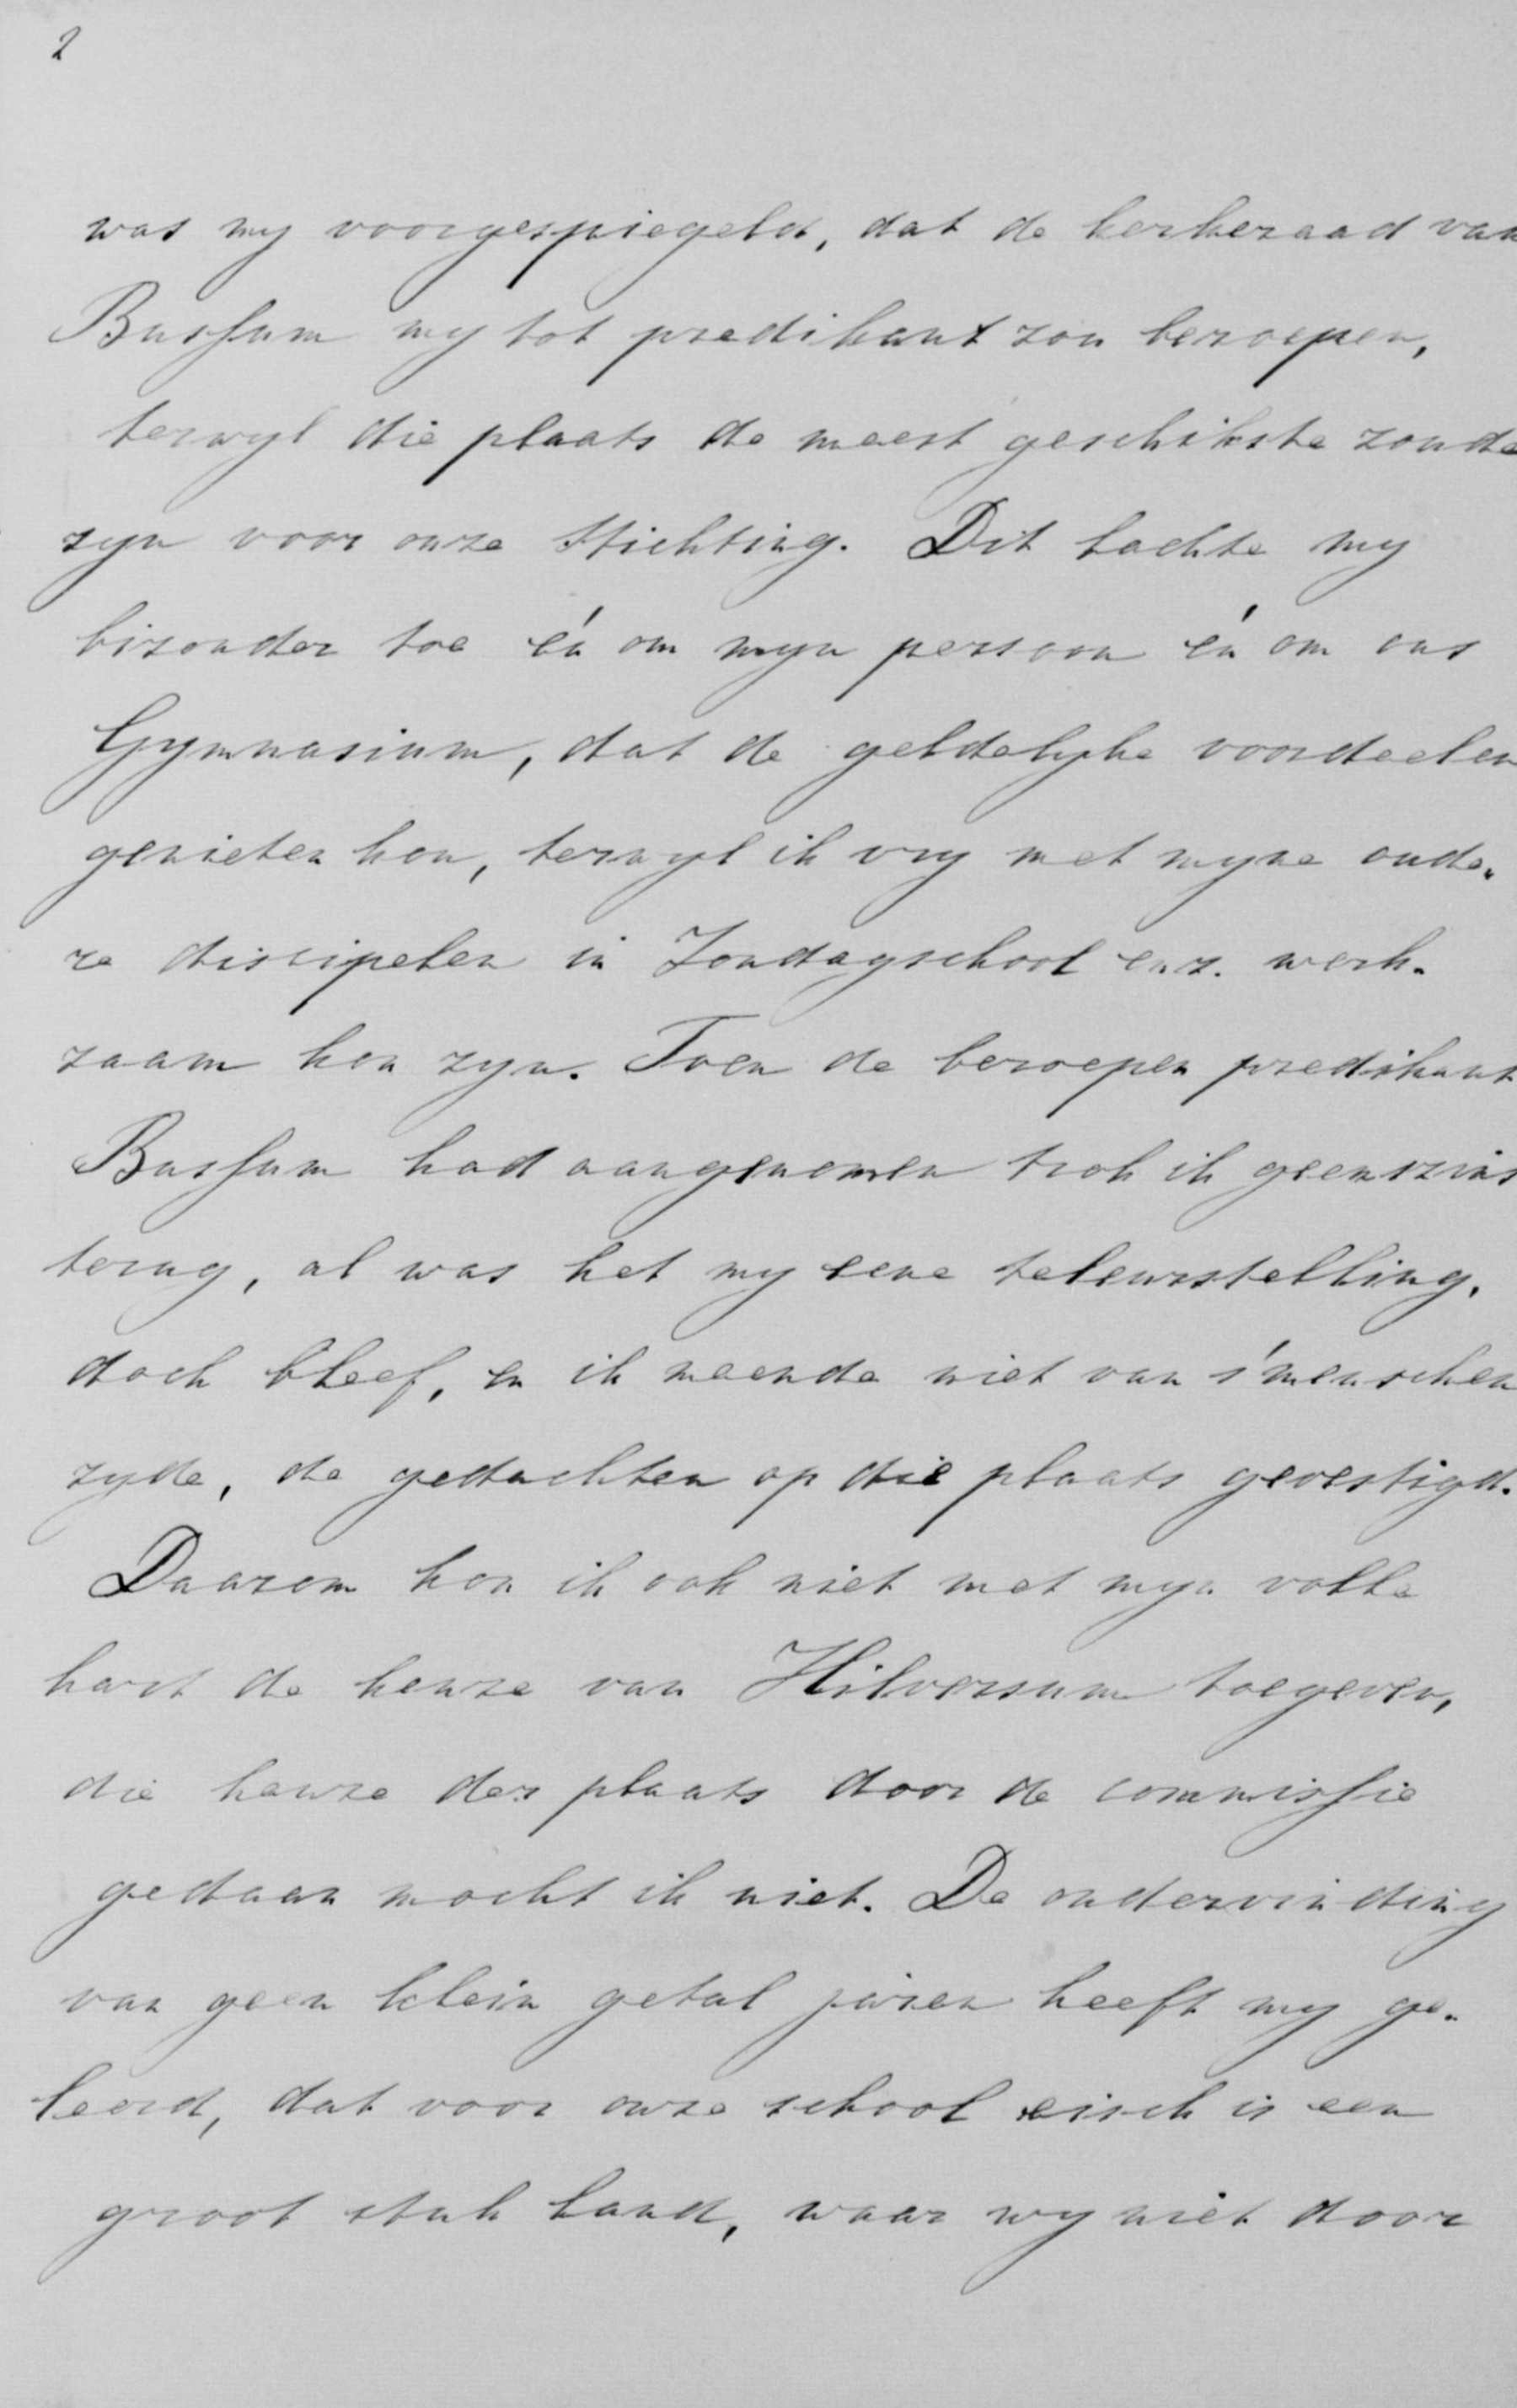 2
was my voorgespiegeld, dat de kerkeraad van
Bussum my tot predikant zou beroepen,
terwyl die plaats de meest geschikste zoude
zyn voor onze Stichting. Dit lachte my
bizonder toe én om myn persoon én om ons
Gymnasium, dat de geldelyke voordeelen
genieten kon, terwyl ik vry met myne oude-
re discipelen in Zondagschool enz. werk-
zaam kon zyn. Toen de beroepen predikant
Bussum had aangenomen trok ik geenszins
terug, al was het my eene teleurstelling,
doch bleef, en ik meende niet van s'menschen
zyde, de gedachten op die plaats gevestigd.
Daarom kon ik ook niet met myn volle
hart de keuze van Hilversum toegeven,
die keuze der plaats door de commissie
gedaan mocht ik niet. De ondervinding
van geen klein getal jaren heeft my ge-
leerd, dat voor onze school eisch is een
groot stuk land, waar wy niet door